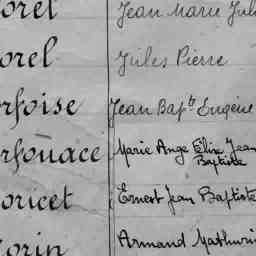 orel Jean Marie Jul
orel Jules Pierre
rfoise Jean Bapte Eugène
rfouace Marie Ange Elie Jean
Baptiste
oricet Ernest Jean Baptiste
orin Armand Mathurin